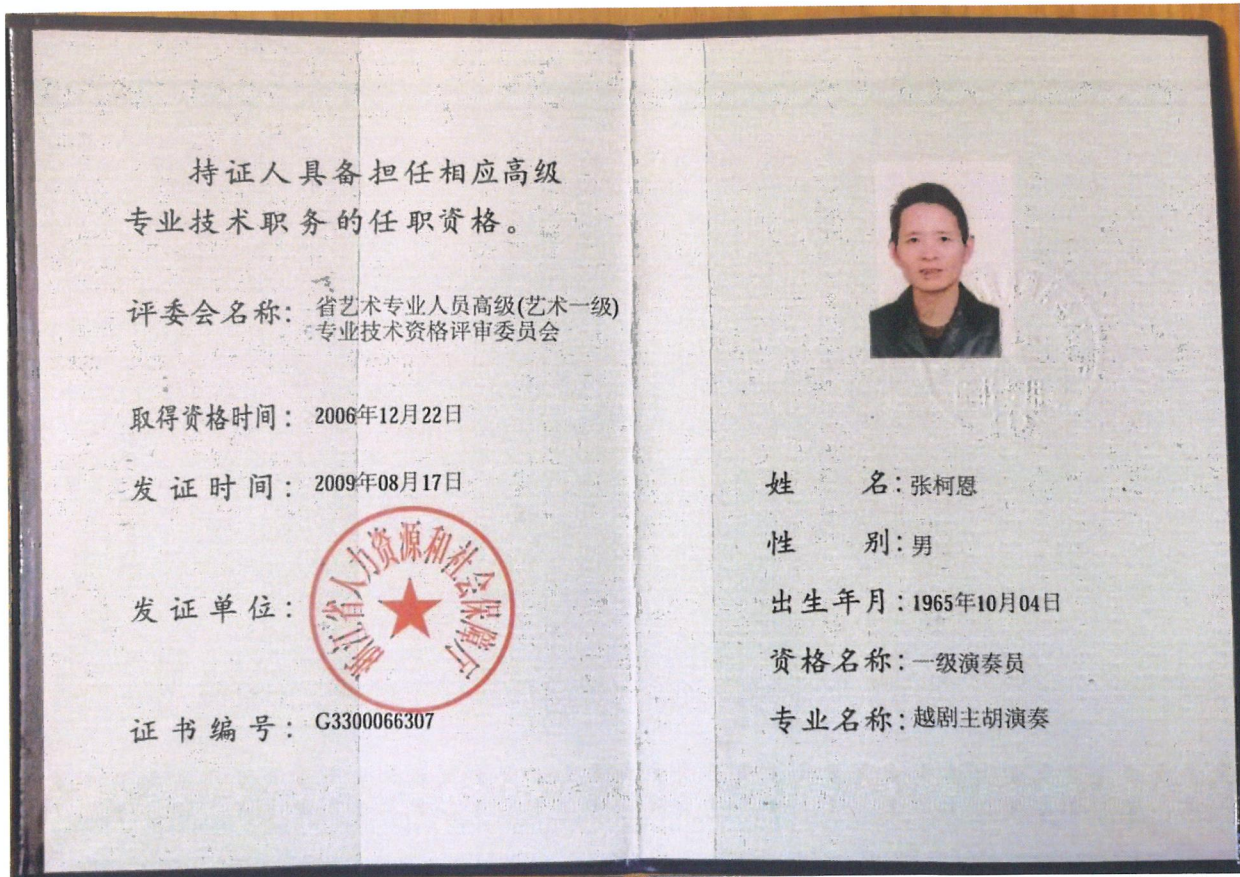 持证人具备担任相应高级
专业技术职务的任职资格。
评委会名称：省艺术专业人员高级(艺术一级)
专业技术资格评审委员会
取得资格时间：2006年12月22日
发证时间：2009年08月17日
发证单位：
浙江省人力资源和社会保障厅
证书编号：G3300066307
姓名：张柯恩
性别：男
出生年月：1965年10月04日
资格名称：一级演奏员
专业名称：越剧主胡演奏